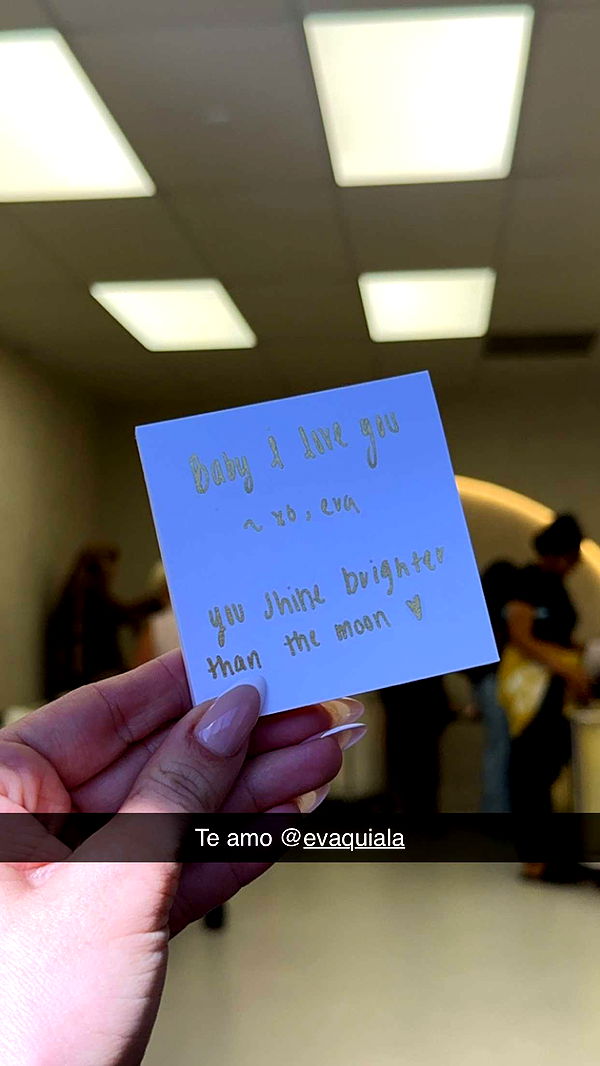 Baby I love you
~ xo, eva
you shine brighter
than the moon ♥
Te amo @evaquiala